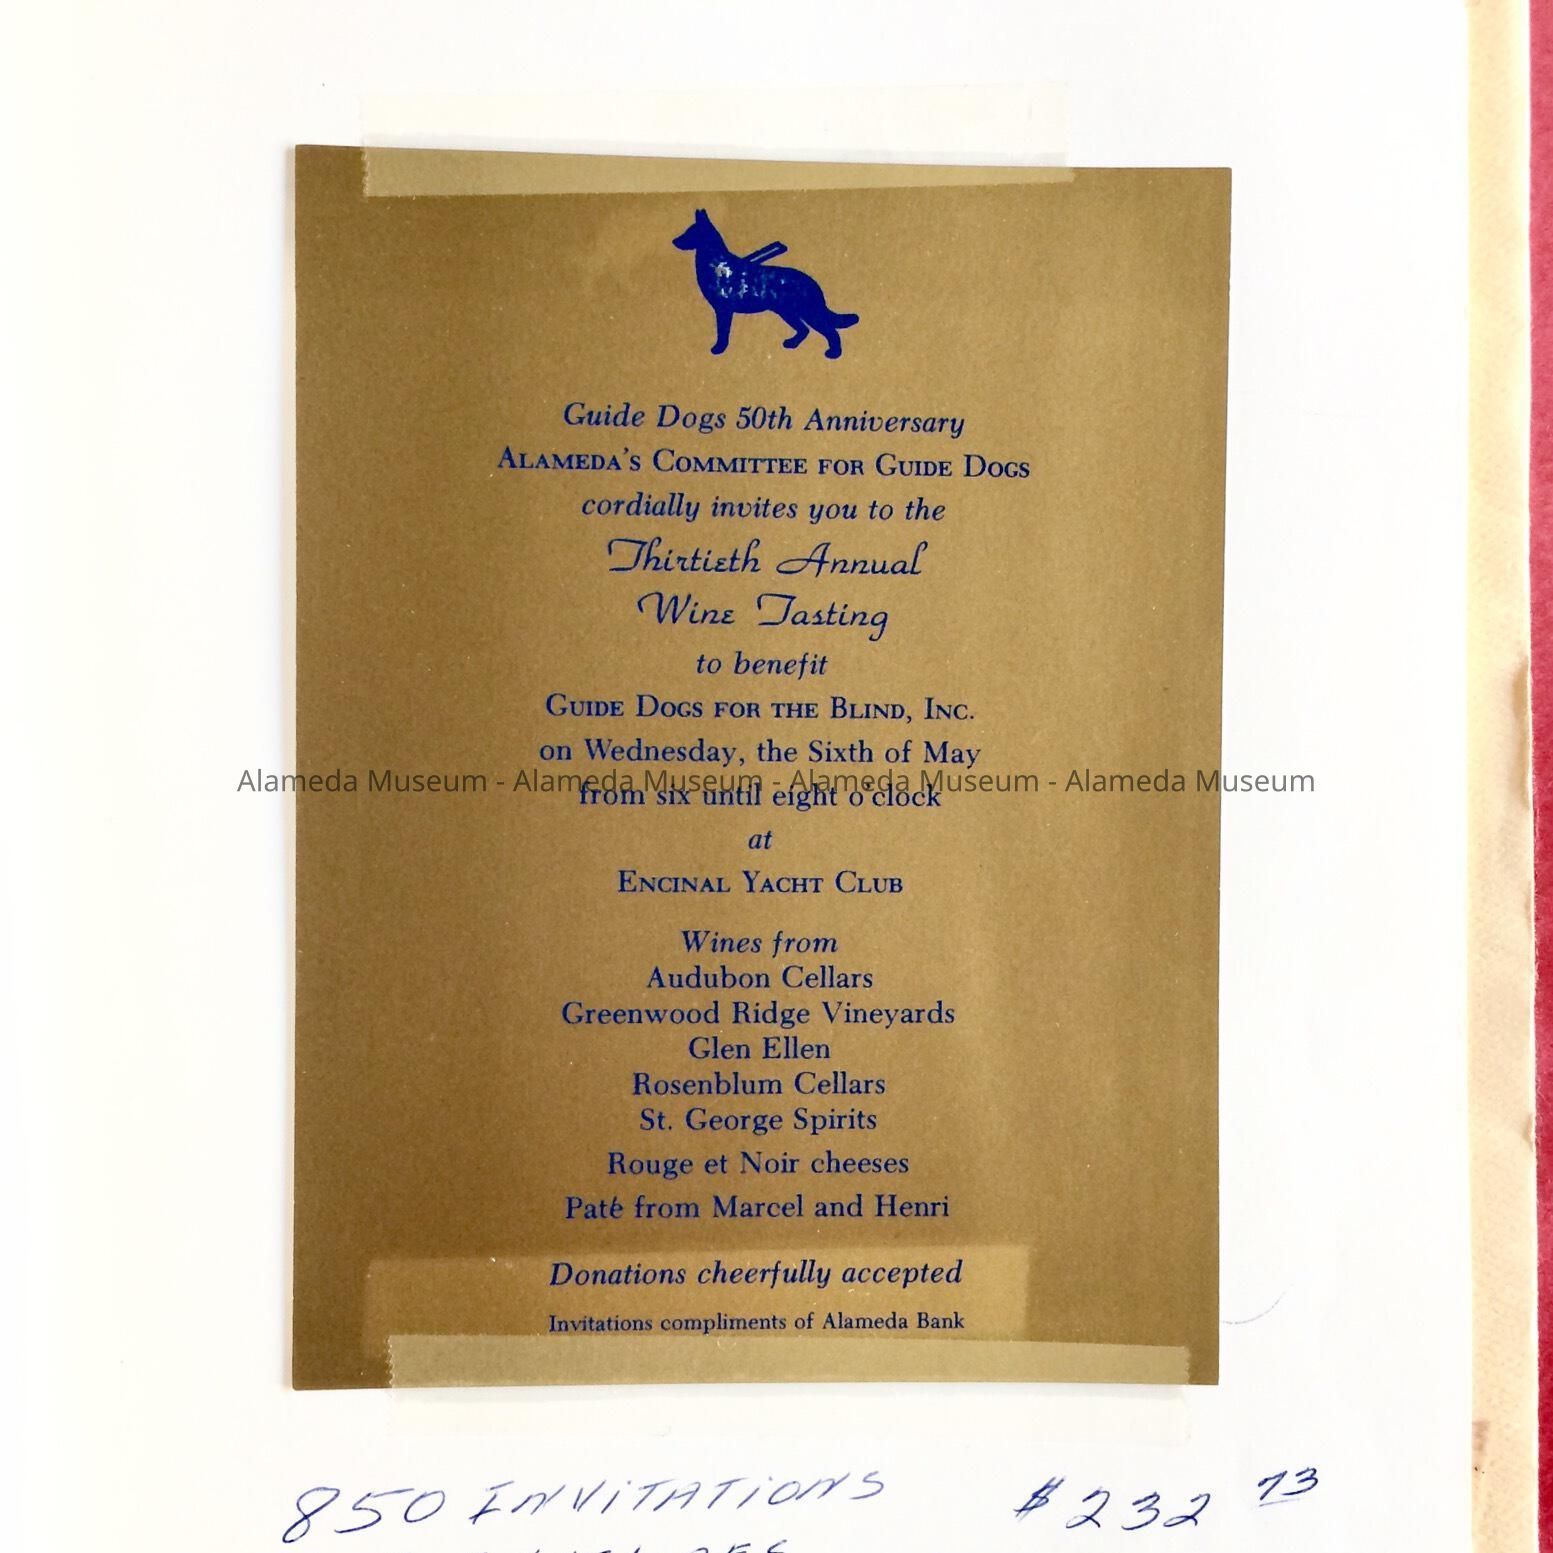 Guide Dogs 50th Anniversary
ALAMEDA'S COMMITTEE FOR GUIDE DOGS
cordially invites you to the
Thirtieth Annual
Wine Tasting
to benefit
GUIDE DOGS FOR THE BLIND, INC.
on Wednesday, the Sixth of May
Alameda Museum - Alameda Museum - Alameda Museum - Alameda Museum
from six until eight o'clock
at
ENCINAL YACHT CLUB
Wines from
Audubon Cellars
Greenwood Ridge Vineyards
Glen Ellen
Rosenblum Cellars
St. George Spirits
Rouge et Noir cheeses
Paté from Marcel and Henri
Donations cheerfully accepted
Invitations compliments of Alameda Bank
850 INVITATIONS $232 73